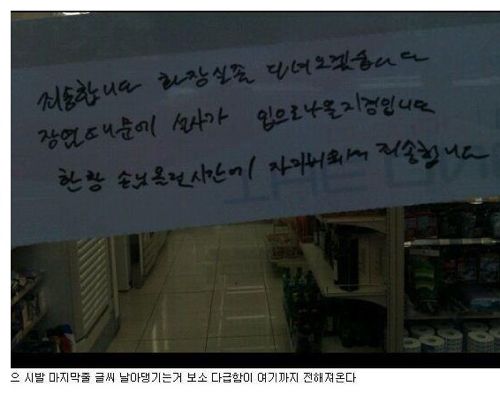 죄송합니다 화장실좀 다녀오겠습니다
장염때문에 설사가 입으로나올지경입니다
한창 손님올련시간에 자리비워서 죄송합니다
으 시발 마지막줄 글씨 날아댕기는거 보소 다급함이 여기까지 전해져온다